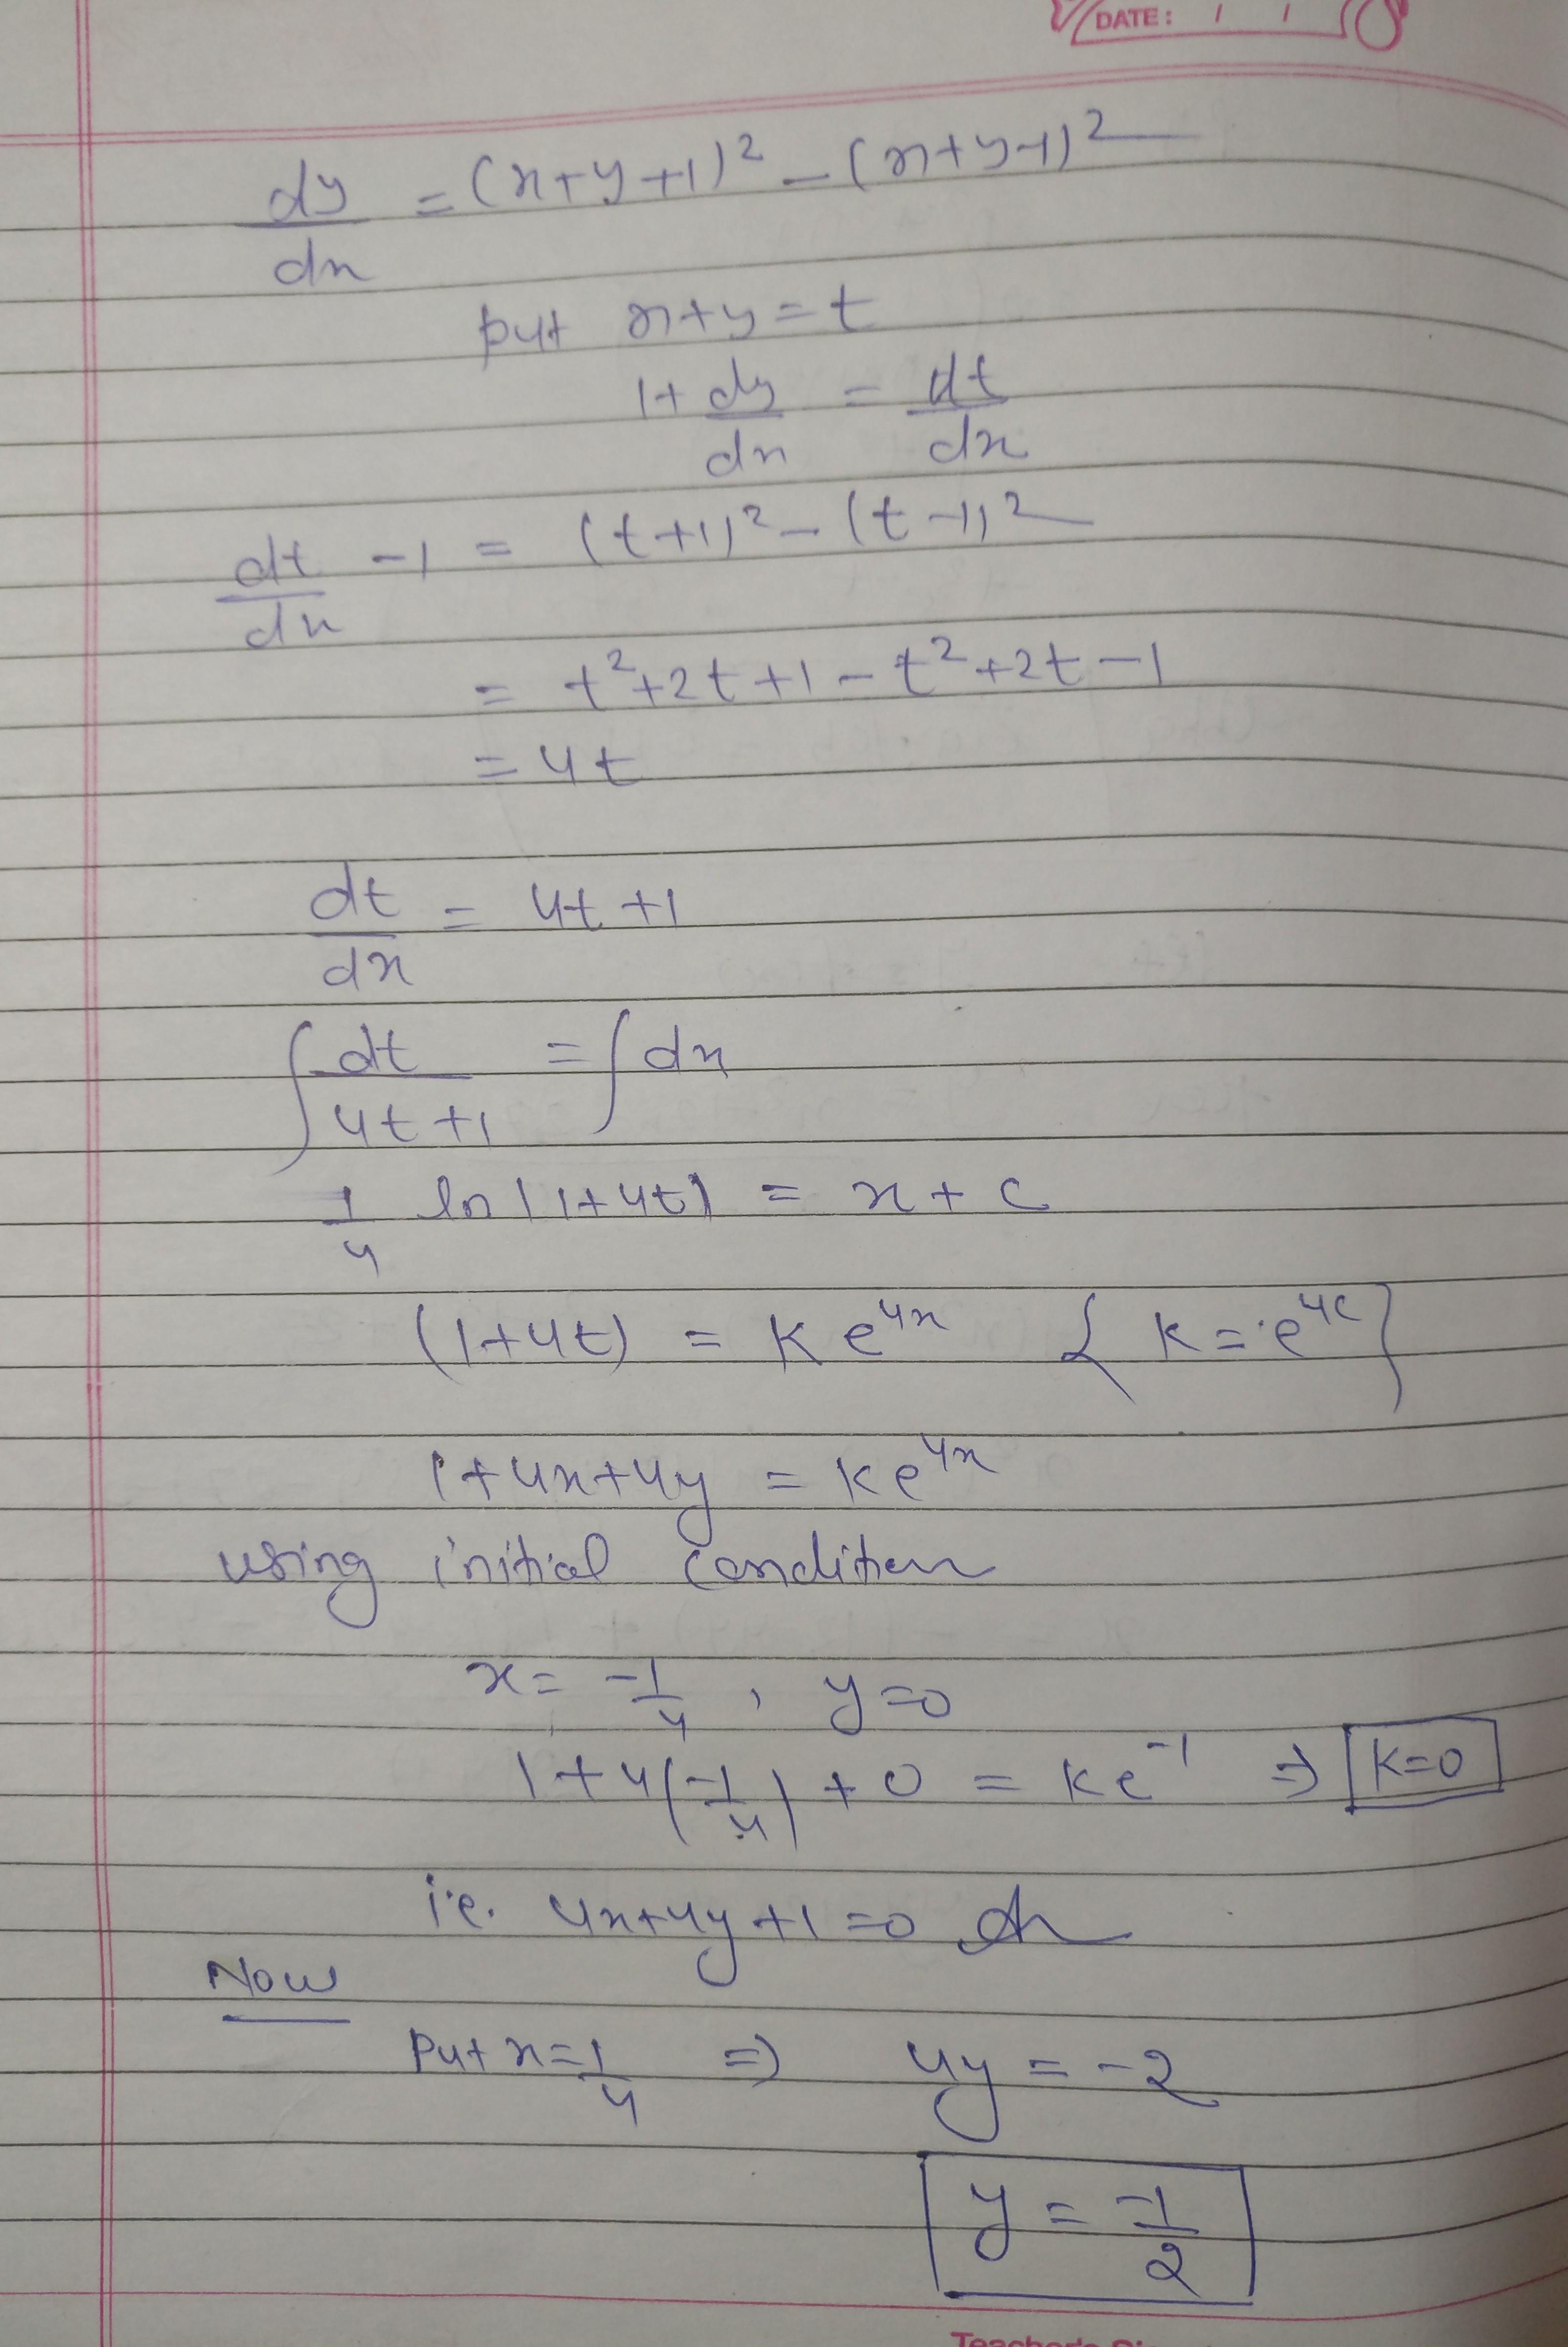 DATE: / /
dy/dx = (x+y+1)² - (x+y-1)²
put x+y=t
1+ dy/dx = dt/dx
dt/dx - 1 = (t+1)² - (t-1)²
= t²+2t+1-t²+2t-1
= 4t
dt/dx = 4t+1
∫ dt/4t+1 = ∫dx
1/4 ln(1+4t) = x+c
(1+4t) = Ke^4x { K = e^4c }
1+4x+4y = Ke^4x
using initial condition
x = -1/4 , y=0
1+4(-1/4)+0 = Ke^-1 ⇒ K=0
i.e. 4x+4y+1=0
Now
Put x=1/4 ⇒ 4y = -2
y = -1/2